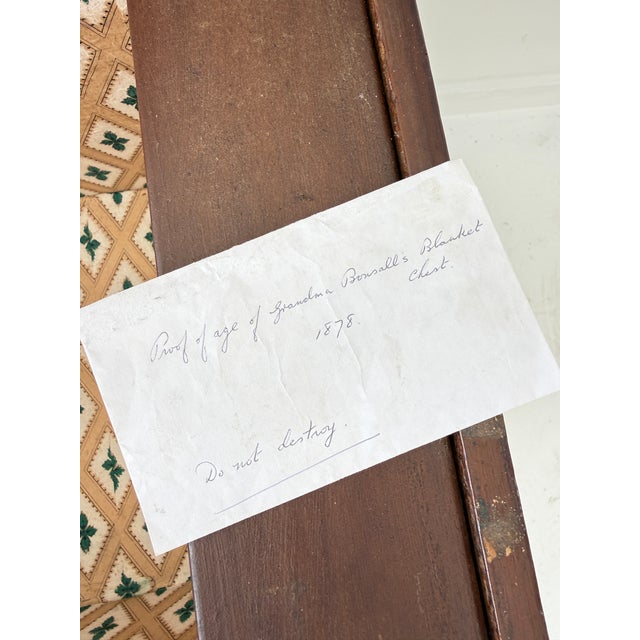 Proof of age of Grandma Bonsall's Blanket
Chest.
1878.
Do not destroy.